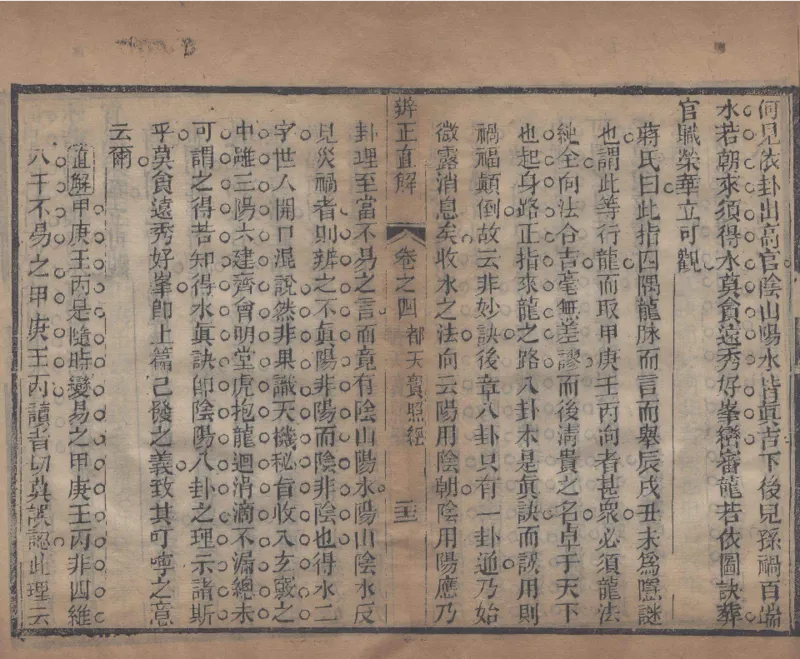 何見依卦出高官陰山陽水皆眞吉下後兒孫禍百端
水若朝來須得水莫貪遠秀好峯巒審龍若依圖訣葬
官職榮華立可觀
蔣氏曰此指四隅龍脉而言而舉辰戌丑未爲隱謎
也謂此等行龍而取甲庚壬丙向者甚衆必須龍法
純全向法合吉毫無差謬而後淸貴之名卓于天下
也起身路正指來龍之路八卦本是眞訣而誤用則
禍福顛倒故云非妙訣後章八卦只有一卦通乃始
微露消息矣收水之法向云陽用陰朝陰用陽應乃
辨正直解
卷之四 都天寶照經
二十三
卦理至當不易之言而竟有陰山陽水陽山陰水反
見災禍者則辨之不眞陽非陽而陰非陰也得水二
字世人開口混說然非果識天機秘旨收入玄竅之
中雖三陽六建齊會明堂虎抱龍迴涓滴不漏總未
可謂之得苦知得水眞訣卽陰陽八卦之理示諸斯
乎莫貪遠秀好峯卽上篇已發之義致其叮嚀之意
云爾
直解甲庚壬丙是隨時變易之甲庚壬丙非四維
八干不易之甲庚壬丙讀者切莫誤認此理云